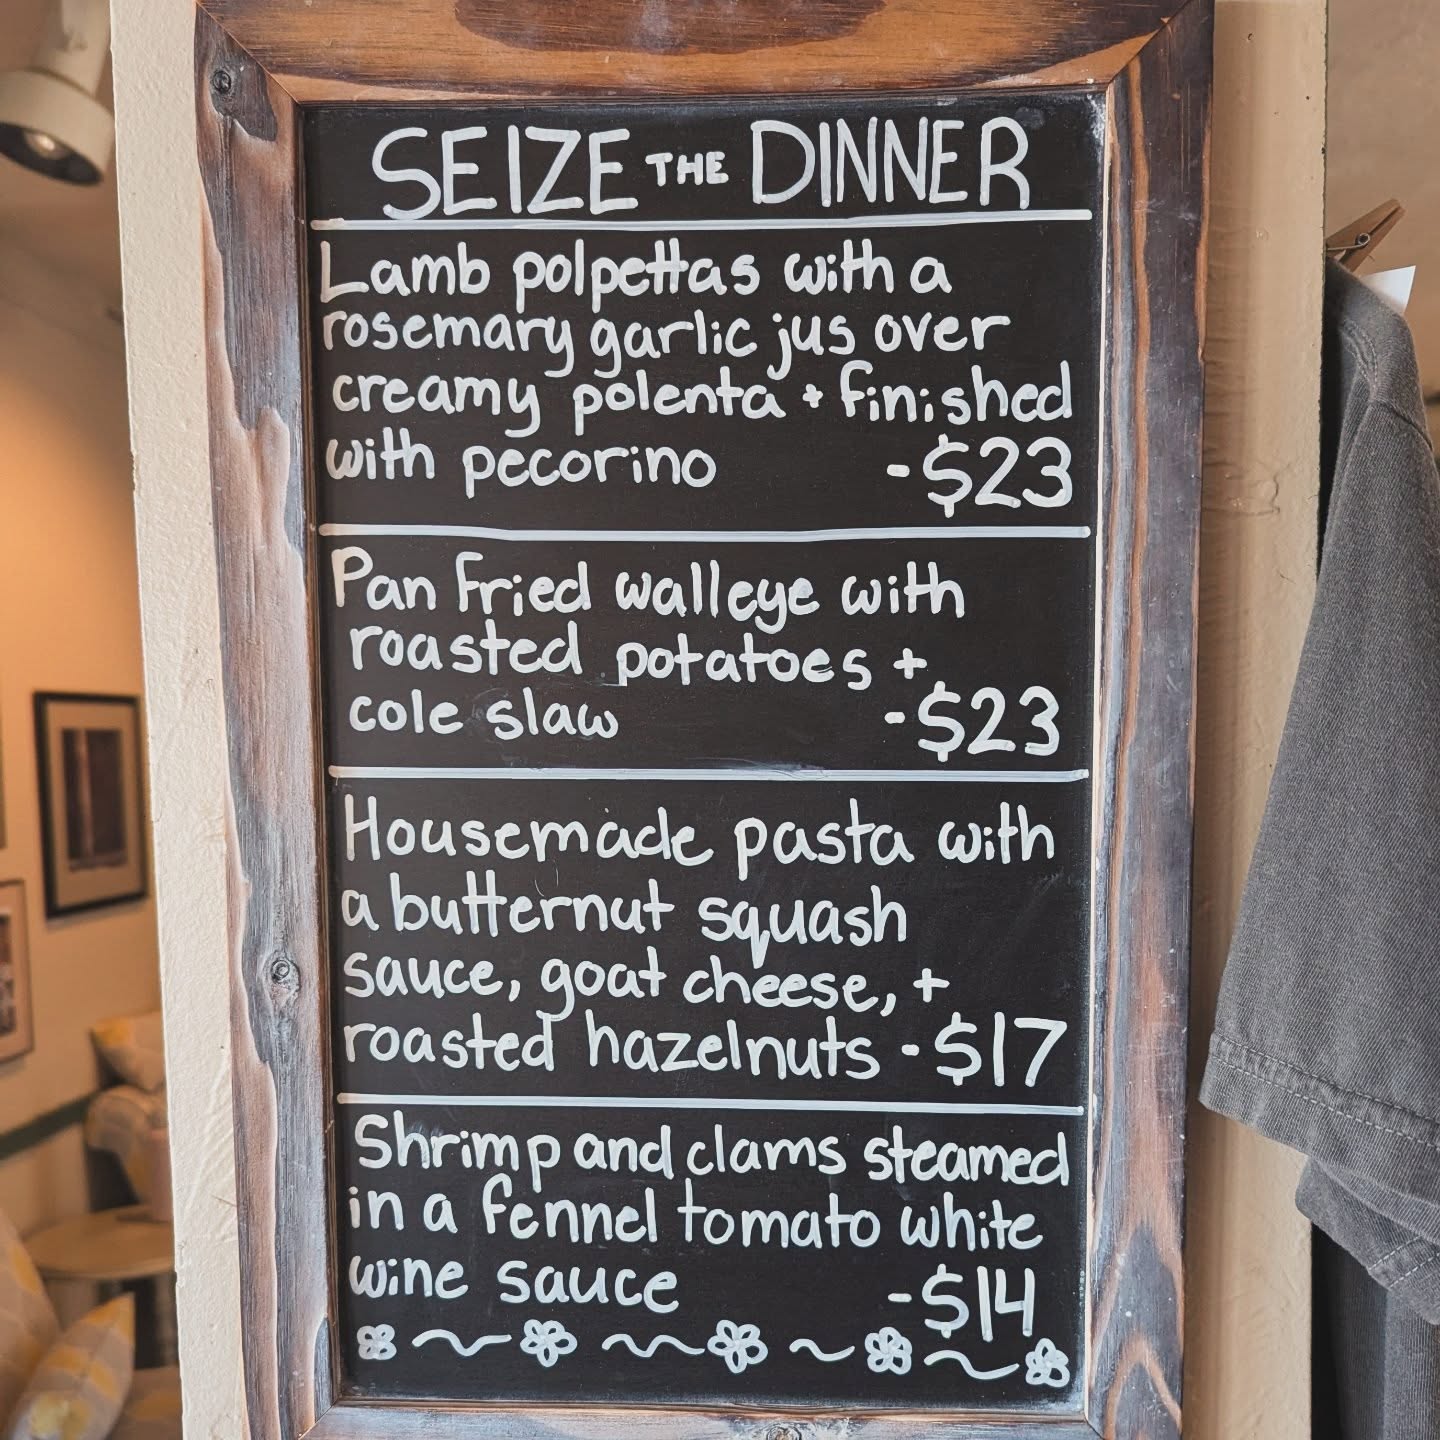 SEIZE THE DINNER
Lamb polpettas with a
rosemary garlic jus over
creamy polenta + finished
with pecorino -$23
Pan fried walleye with
roasted potatoes +
cole slaw -$23
Housemade pasta with
a butternut squash
sauce, goat cheese, +
roasted hazelnuts -$17
Shrimp and clams steamed
in a fennel tomato white
wine sauce -$14